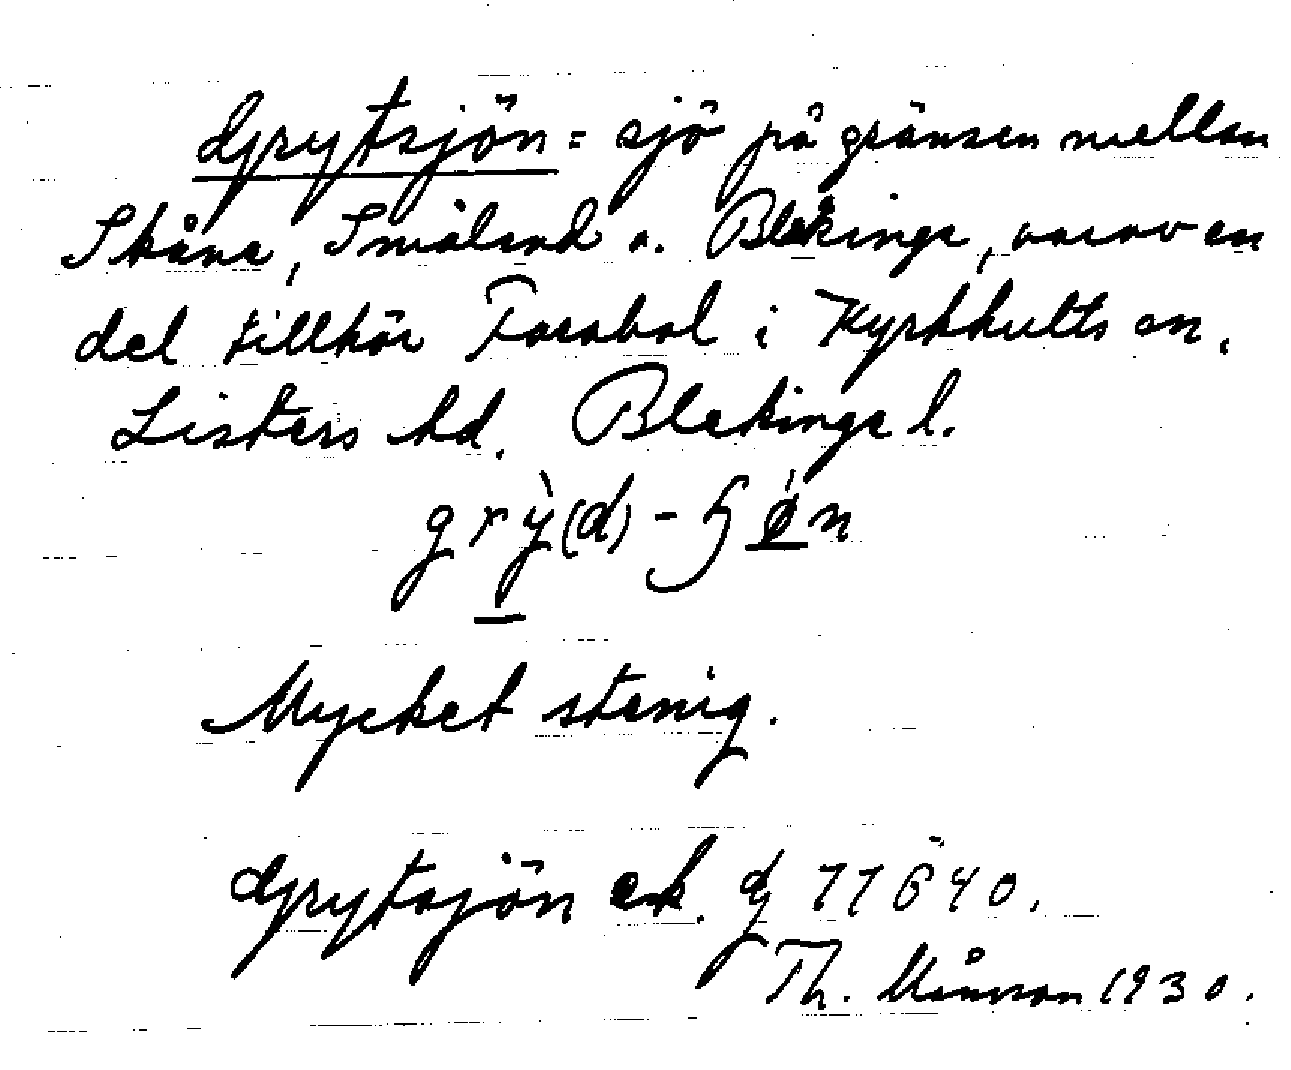 Grytsjön = sjö på gränsen mellan
Skåne, Småland o. Blekinge, varav en
del tillhör Farabol i Kyrkhults sn,
Listers hd. Blekinge l.
grỳ(d)-ʃǿn
Mycket stenig.
Grytsjön ek. bl 77640.
Th. Månsson 1930.